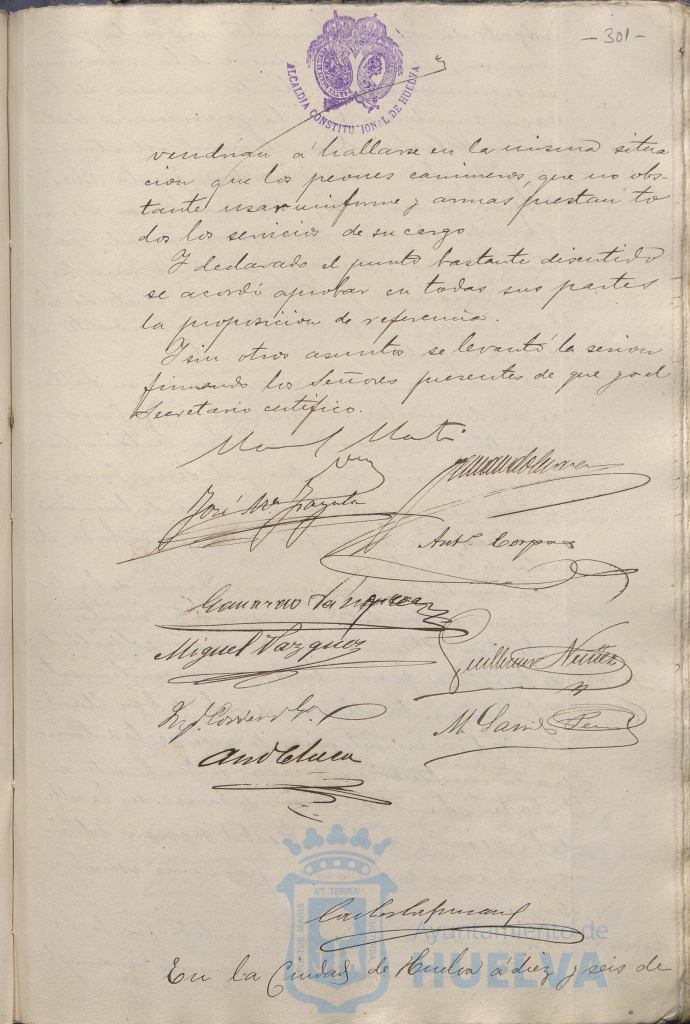 - 301 -
ALCALDIA CONSTITUCIONAL DE HUELVA
vendrian á hallarse en la misma situa
cion que los peones camineros, que no obs-
tante usar uniforme y armas prestan to
dos los servicios de su cargo
Y declarado el punto bastante discutido
se acordó aprobar en todas sus partes
la proposicion de referencia.
Y sin otros asuntos se levantó la sesion
firmando los Señores presentes de que yo el
Secretario certifico.
Manuel
José Mª
Antº Corpas
Vazquez
Miguel Vazquez
Guillermo Nuñez
M.
ET TERRÆ
PORTUS MARIS
CUSTODIA
Ayuntamiento de
HUELVA
En la Ciudad de Huelva á diez y seis de